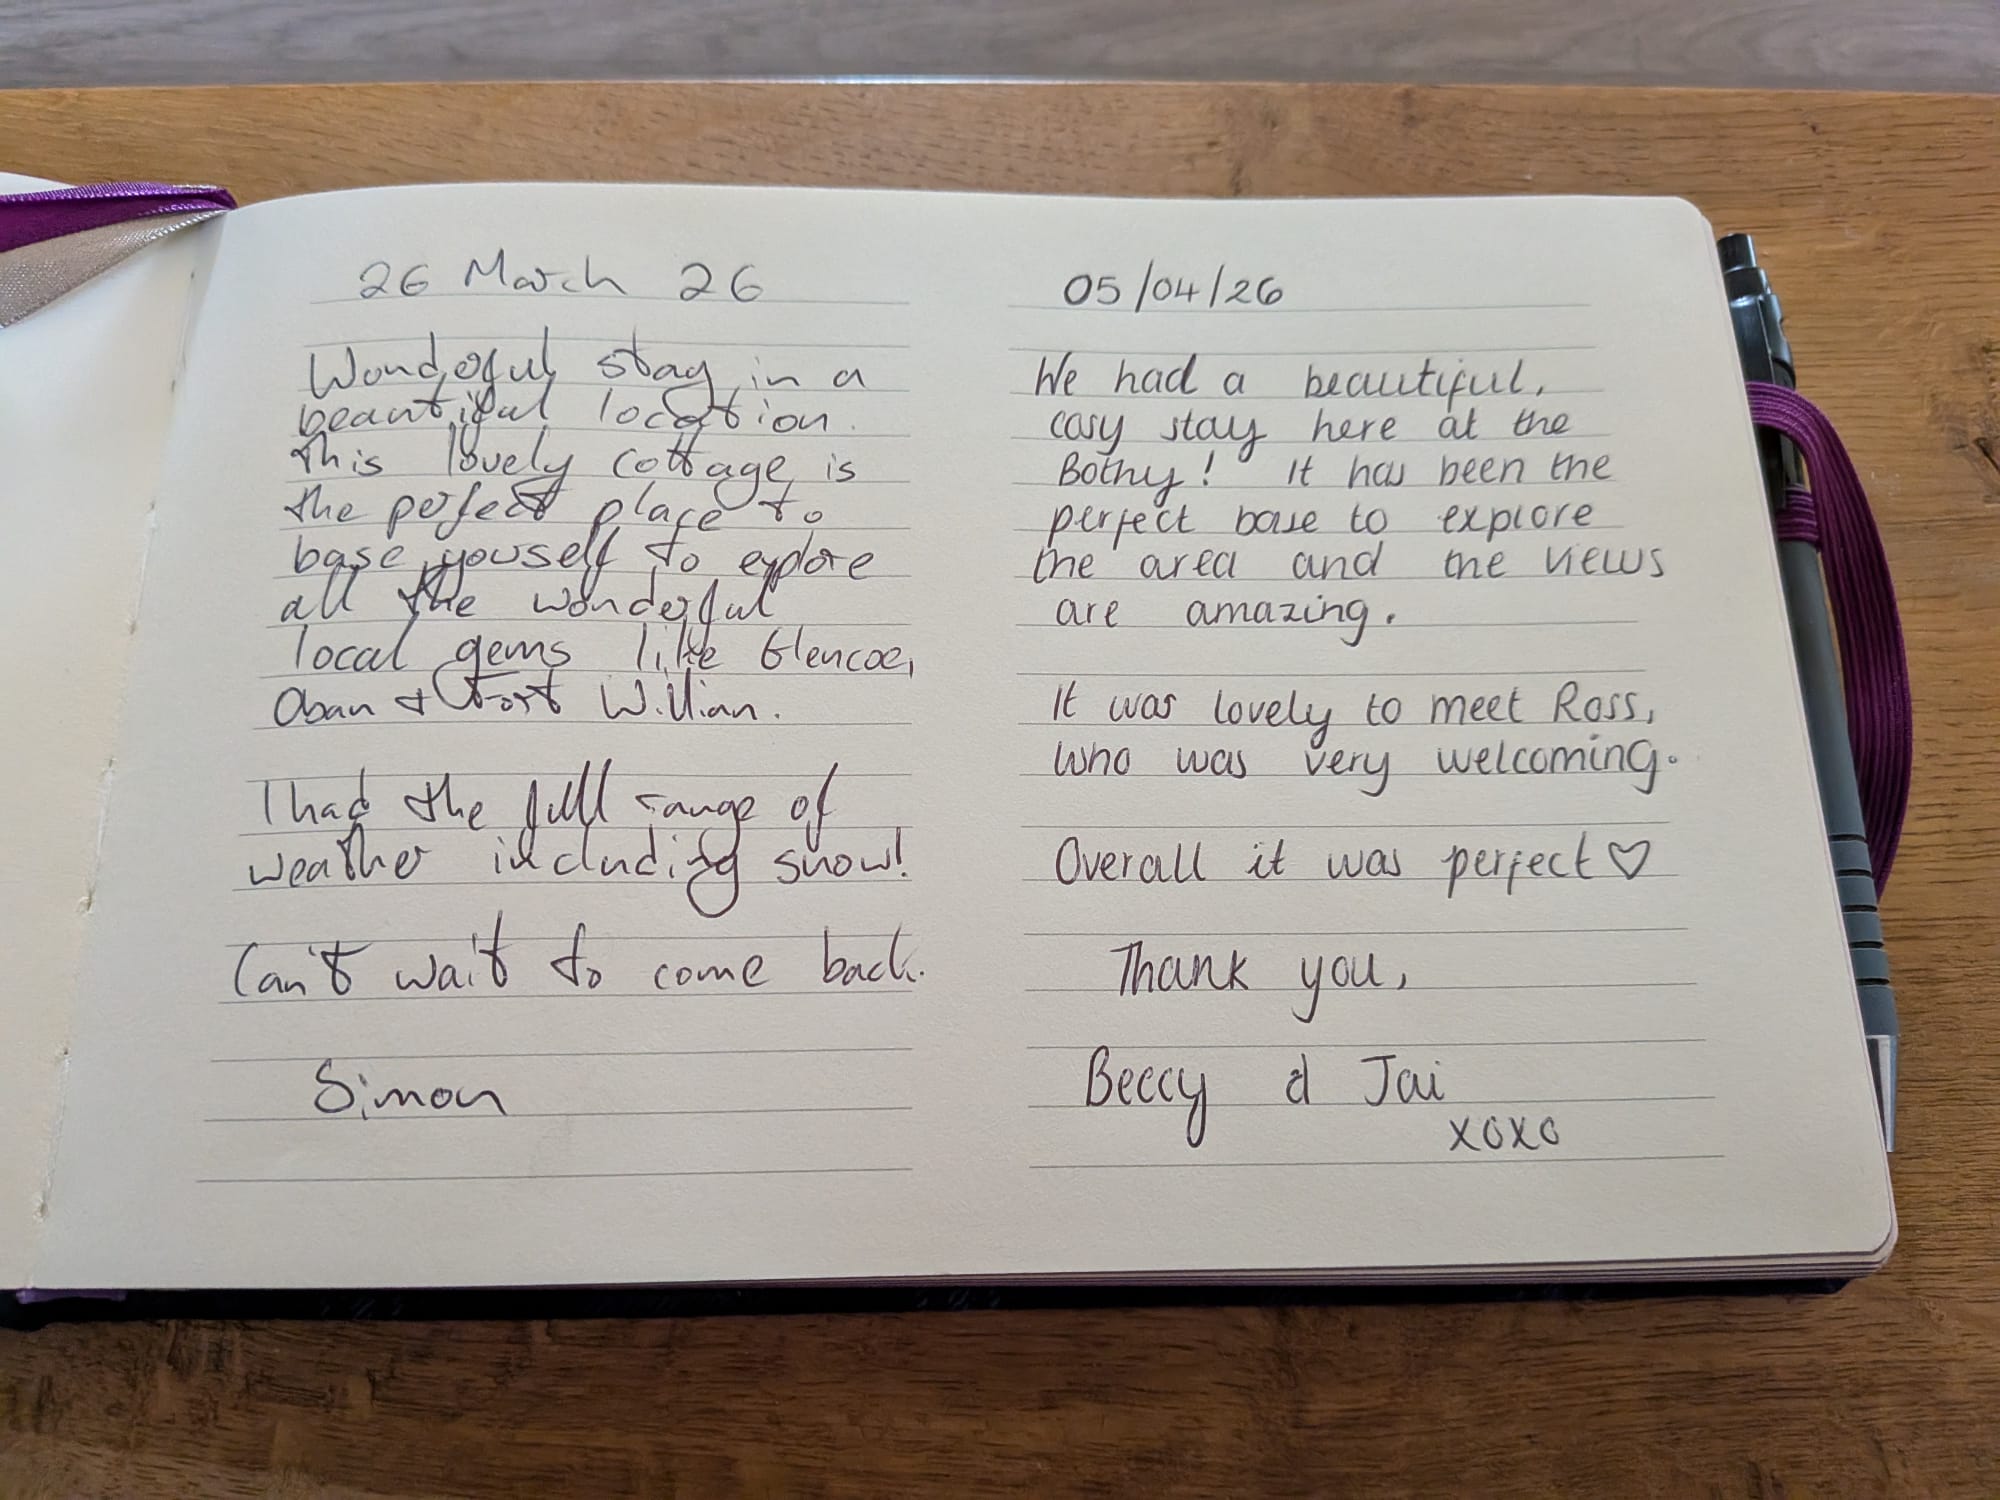 26 March 26
Wonderful stay in a
beautiful location.
This lovely cottage is
the perfect place to
base yourself to explore
all the wonderful
local gems like Glencoe,
Oban & Fort William.
I had the full range of
weather including snow!
Can't wait to come back.
Simon
05/04/26
We had a beautiful,
cosy stay here at the
Bothy! It has been the
perfect base to explore
the area and the views
are amazing.
It was lovely to meet Ross,
who was very welcoming.
Overall it was perfect ♡
Thank you,
Beccy & Jai
xoxo